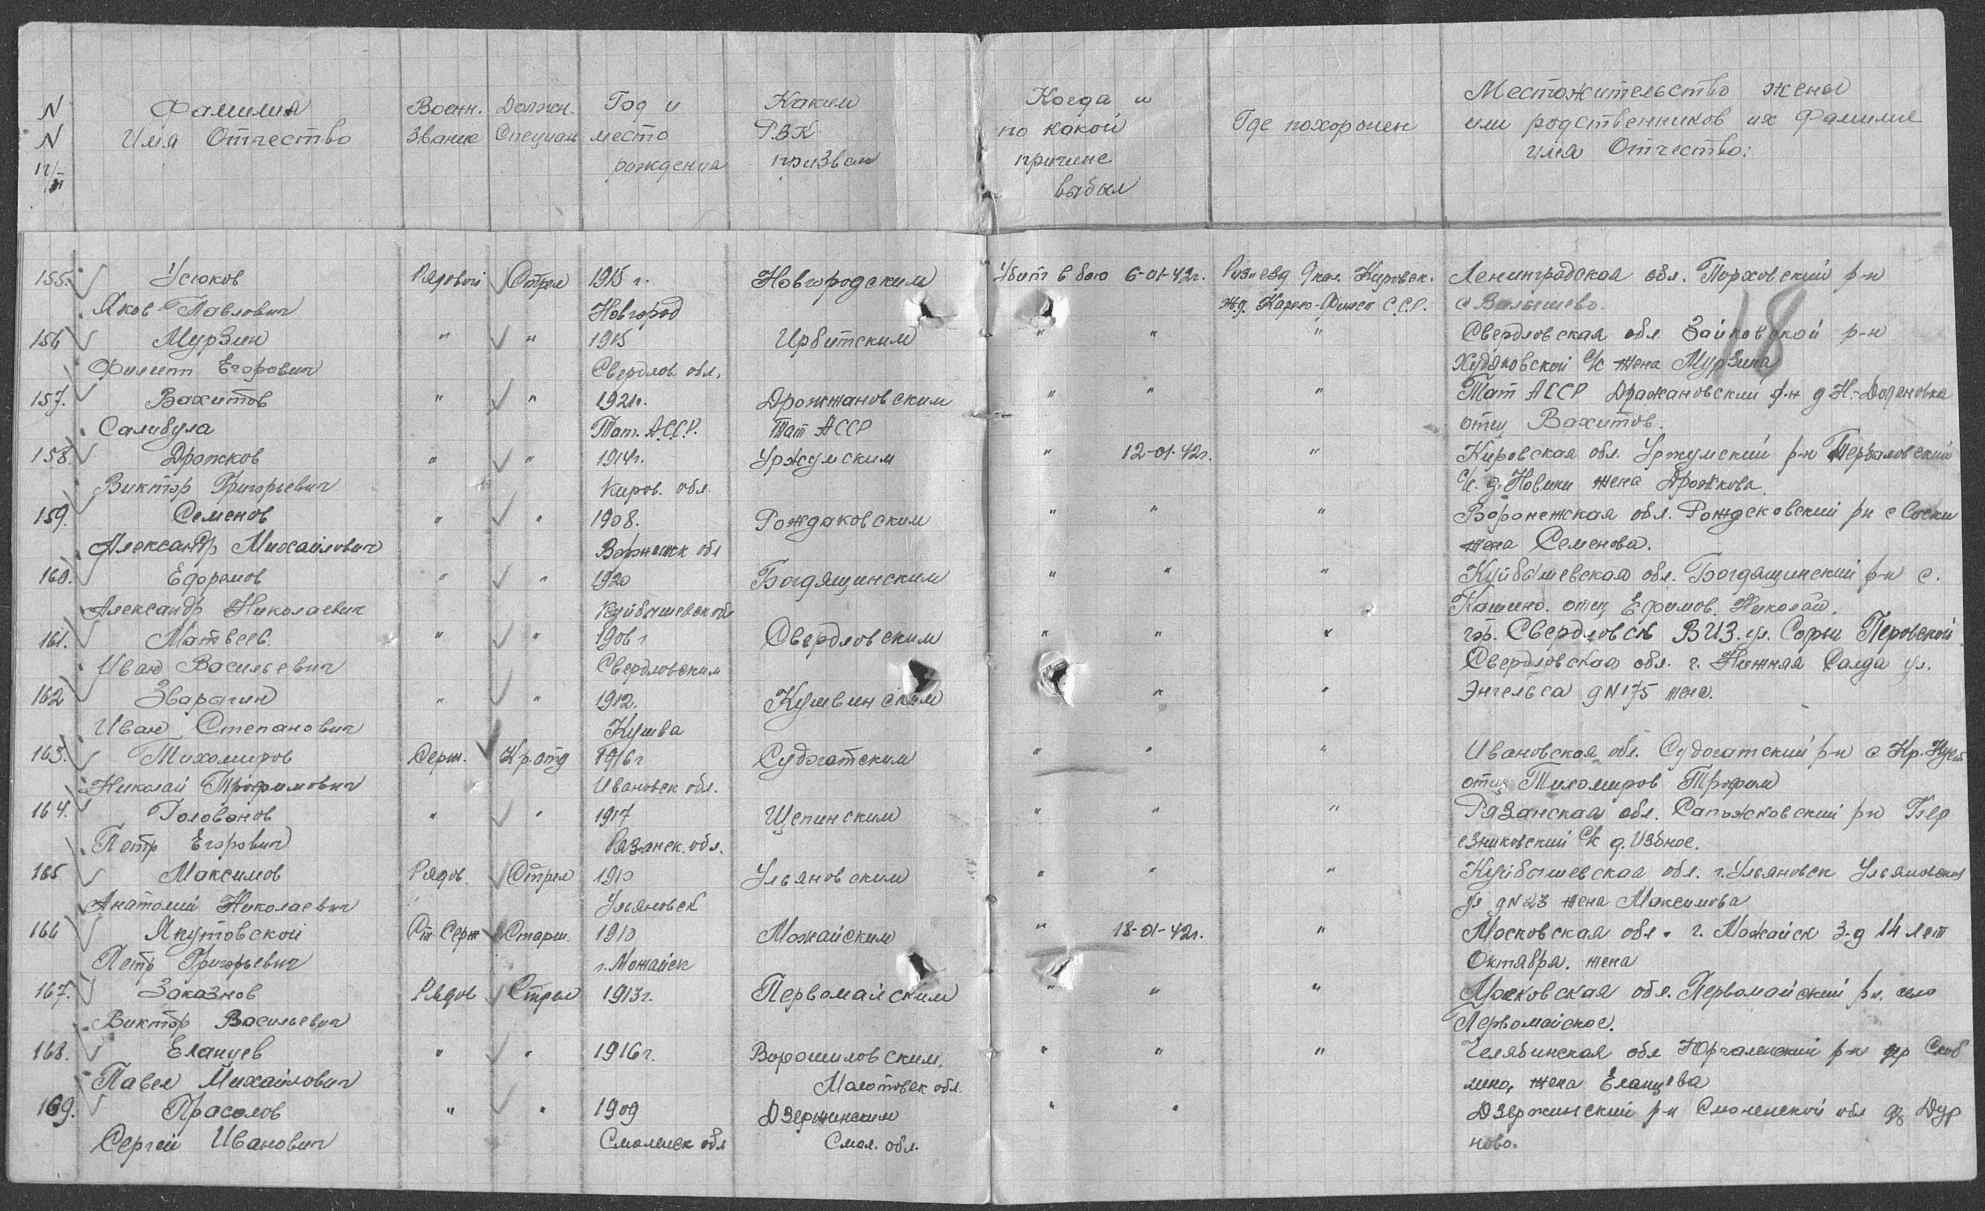 N Фамилия Воен. Должн. Год и Каким Когда и Местожительство жены
N Имя Отчество Звание Специал место РВК по какой Где похоронен или родственников их Фамилие
п/п рождения призван причине имя Отчество:
выбыл
155. Усюков Рядовой Стрел 1915 г. Новгородским Убит в бою 6-01-42г. Розъезд 9 км. Кировск. Ленинградская обл. Порховский р-н
Яков Павлович Новгород ж.д. Карело-Финск С.С.Р. с Валышево.
156 Мурзин " " 1915 Ирбитским " " " Свердловская обл Зайковской р-н
Филипп Егорович Свердлов. обл. Худяковской С/с жена Мурзина
18
157. Вахитов " " 1921г. Дрожжановским " " " Тат АССР Дрожановский р-н д Н.-
Салибула Тат. А.С.С.Р. Тат АССР отец Вахитов.
158 Дрожков " " 1914г. Уржумским " 12-01-42г. " Кировская обл. Уржумский р-н
Виктор Григорьевич Киров. обл С/с. д. Новики жена Дрожкова.
159. Семенов " " 1908. Рождаковским " " " Воронежская обл. р-н с
Александр Михайлович Воронежск обл жена Семенова.
160. Ефремов " " 1920 Богдящинским " " " Куйбышевская обл. Богдящинский р-н с.
Александр Николаевич Куйбышевск обл Кашино. отец Ефимов. Николай.
161. Матвеев. " " 1906 г Свердловским " " " гор. Свердловск ВИЗ. ул. Софьи Перовской
Иван Васильевич Свердловским Свердловская обл. г. Нижняя Салда ул.
162 Зварыгин " " 1912. Кушвинским " " Энгельса д N 175 жена.
Иван Степанович Кушва
163. Тихомиров Серж. Ком. отд 1916 г Судогатским " " " Ивановская обл. Судогатский р-н с Кр.
Николай Трофимович Ивановск обл. отец Тихомиров Трофим
164. Голованов " " 1917 Щепинским " " " Рязанская обл. Сапожковский р-н Бер
Петр Егорович Рязанск. обл. езниковский С/с д.
165 Максимов Рядов. Стрел 1910 Ульяновским " " " Куйбышевская обл. г. Ульяновск Ульяновская
Анатолий Николаевич Ульяновск ул д N 23 жена Максимова
166 Якутовской Ст Серж Старш. 1910 Можайским " 18-01-42г. " Московская обл. г. Можайск 3-д 14 лет
Петр Григорьевич г. Можайск Октября. жена
167. Заказнов Рядов Стрел 1913г. Первомайским " " " Московская обл. Первомайский р-н. село
Виктор Васильевич Первомайское.
168. Еланцев " " 1916г. Ворошиловским, " " " Челябинская обл р-н дер Скоб
Павел Михайлович Молотовск обл. лино, жена Еланцева
169. Прасолов " " 1909 Дзержинским " " Дзержинский р-н Смоленской обл дер Дур
Сергей Иванович Смоленск обл Смол. обл. ново.